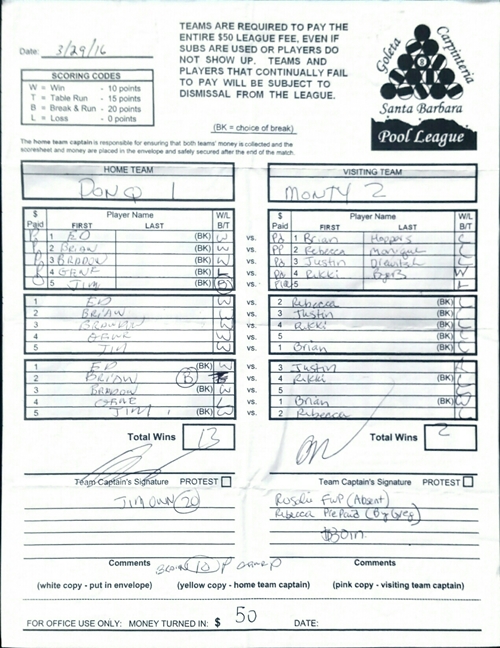 Date: 3/29/16
TEAMS ARE REQUIRED TO PAY THE
ENTIRE $50 LEAGUE FEE, EVEN IF
SUBS ARE USED OR PLAYERS DO
NOT SHOW UP. TEAMS AND
PLAYERS THAT CONTINUALLY FAIL
TO PAY WILL BE SUBJECT TO
DISMISSAL FROM THE LEAGUE.
(BK = choice of break)
SCORING CODES
W = Win - 10 points
T = Table Run - 15 points
B = Break & Run - 20 points
L = Loss - 0 points
Goleta
Carpinteria
8
Santa Barbara
Pool League
The home team captain is responsible for ensuring that both teams' money is collected and the
scoresheet and money are placed in the envelope and safely secured after the end of the match.
HOME TEAM
VISITING TEAM
DON Q 1
MONTY 2
$ Paid Player Name FIRST LAST W/L B/T
$ Paid Player Name FIRST LAST W/L B/T
1 ED (BK) W vs. 1 Brian Hoppers
2 BRIAN W vs. PP 2 Rebecca Monique (BK)
3 BRANDON (BK) W vs. 3 Justin (BK)
4 GENE L vs. 4 Rikki (BK) W
5 JIM (BK) B vs. 5 L
1 ED W vs. 2 Rebecca (BK) L
2 BRIAN W vs. 3 Justin (BK) L
3 BRANDON W vs. 4 Rikki (BK) L
4 GENE W vs. 5 (BK) L
5 JIM W vs. 1 Brian (BK) L
1 ED (BK) W vs. 3 Justin
2 BRIAN B vs. 4 Rikki (BK) L
3 BRANDON (BK) W vs. 5
4 GENE L vs. 1 Brian (BK) W
5 JIM (BK) W vs. 2 Rebecca L
Total Wins 13
Total Wins 2
Team Captain's Signature PROTEST
Team Captain's Signature PROTEST
JIM OWN 20
(Absent)
Rebecca PrePaid (By Greg)
$30 in
Comments
Comments
(white copy - put in envelope) (yellow copy - home team captain) (pink copy - visiting team captain)
FOR OFFICE USE ONLY: MONEY TURNED IN: $ 50 DATE: